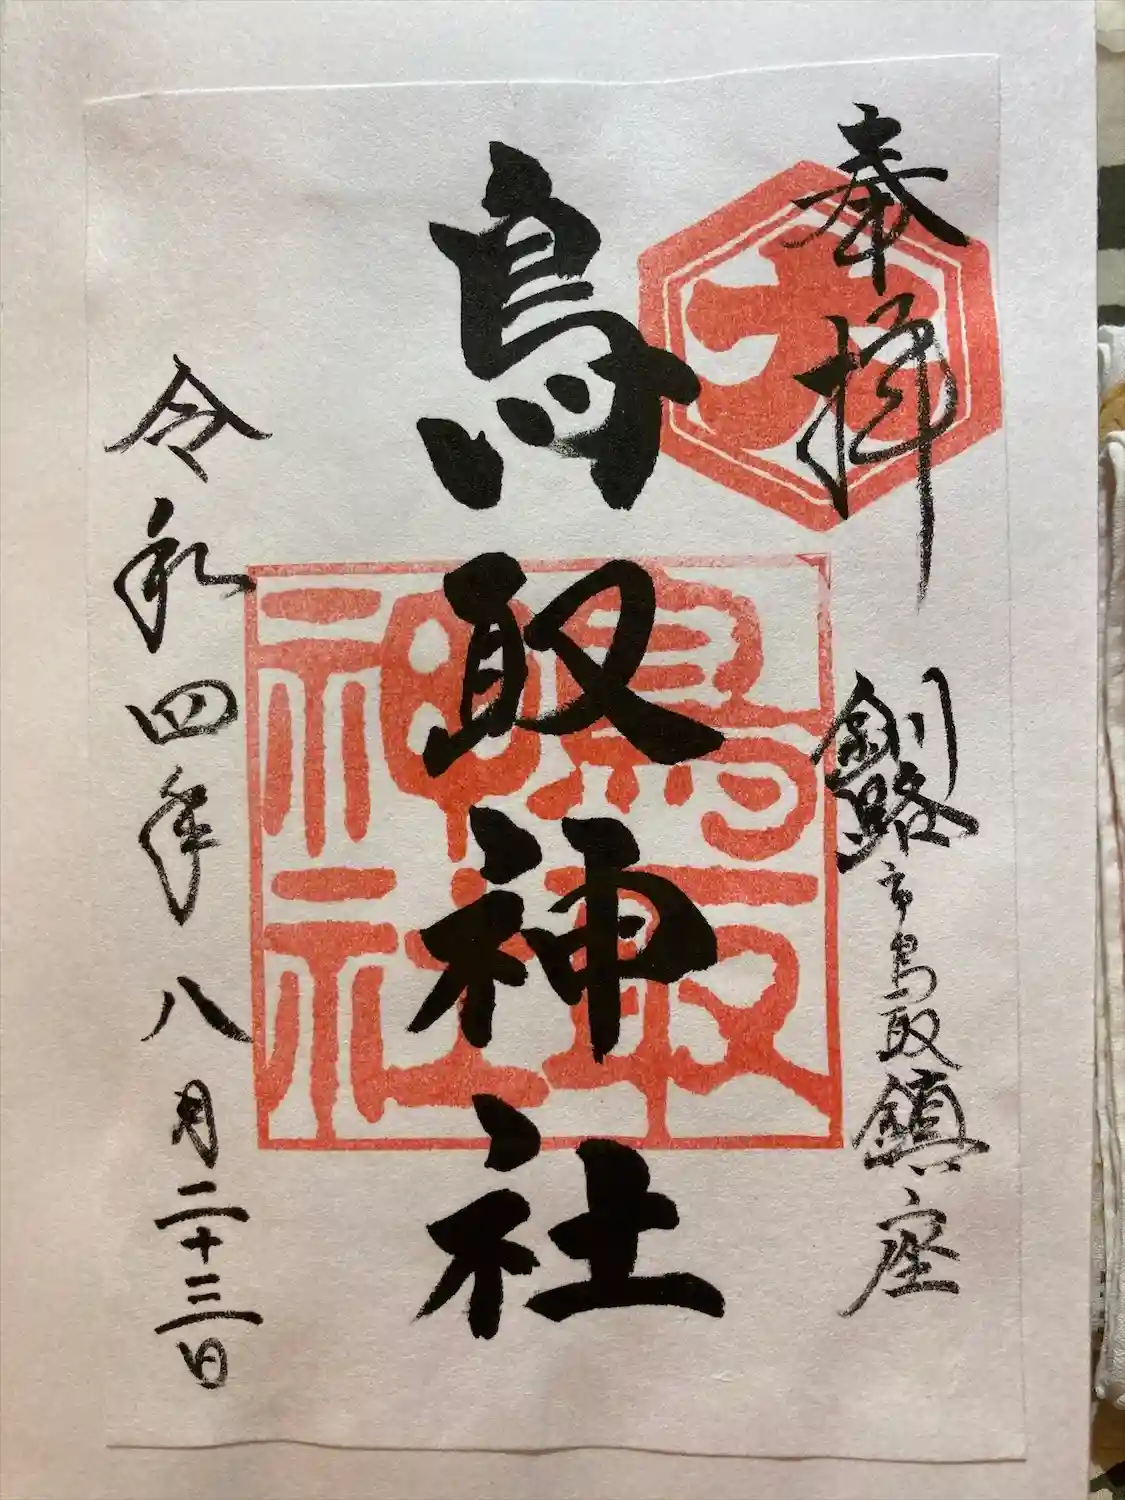 奉拝
釧路市鳥取鎮座
鳥取神社
鳥取神社
令和四年八月二十三日